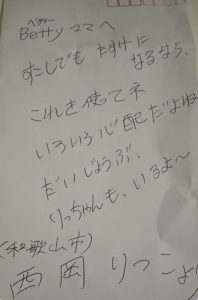 ベティー
Bettyママへ
すこしでも たすけに
なるなら、
これを使ってネ
いろいろ心配だよね
だいじょうぶ、
りっちゃんも、いるよ〜
(和歌山市)
西岡 りつこより